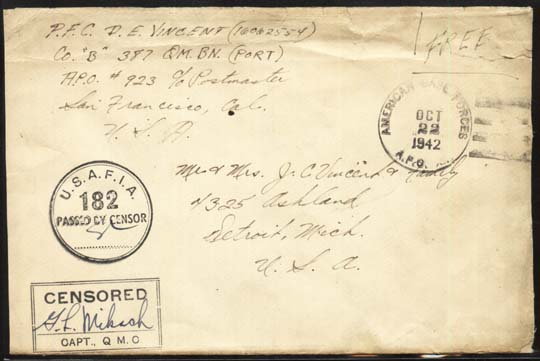 P.F.C. D. E. VINCENT (16042554)
Co. "B" 387 Q.M. BN. (PORT)
A.P.O. # 923 c/o Postmaster
San Francisco, Cal.
U. S. A.
FREE
AMERICAN BASE FORCES
OCT
22
1942
A.P.O.
Mr. & Mrs. J. C. Vincent & Family
1325 Ashland
Detroit, Mich.
U. S. A.
U.S.A.F.I.A.
182
PASSED BY CENSOR
CENSORED
G. L. Miksch
CAPT., Q M C